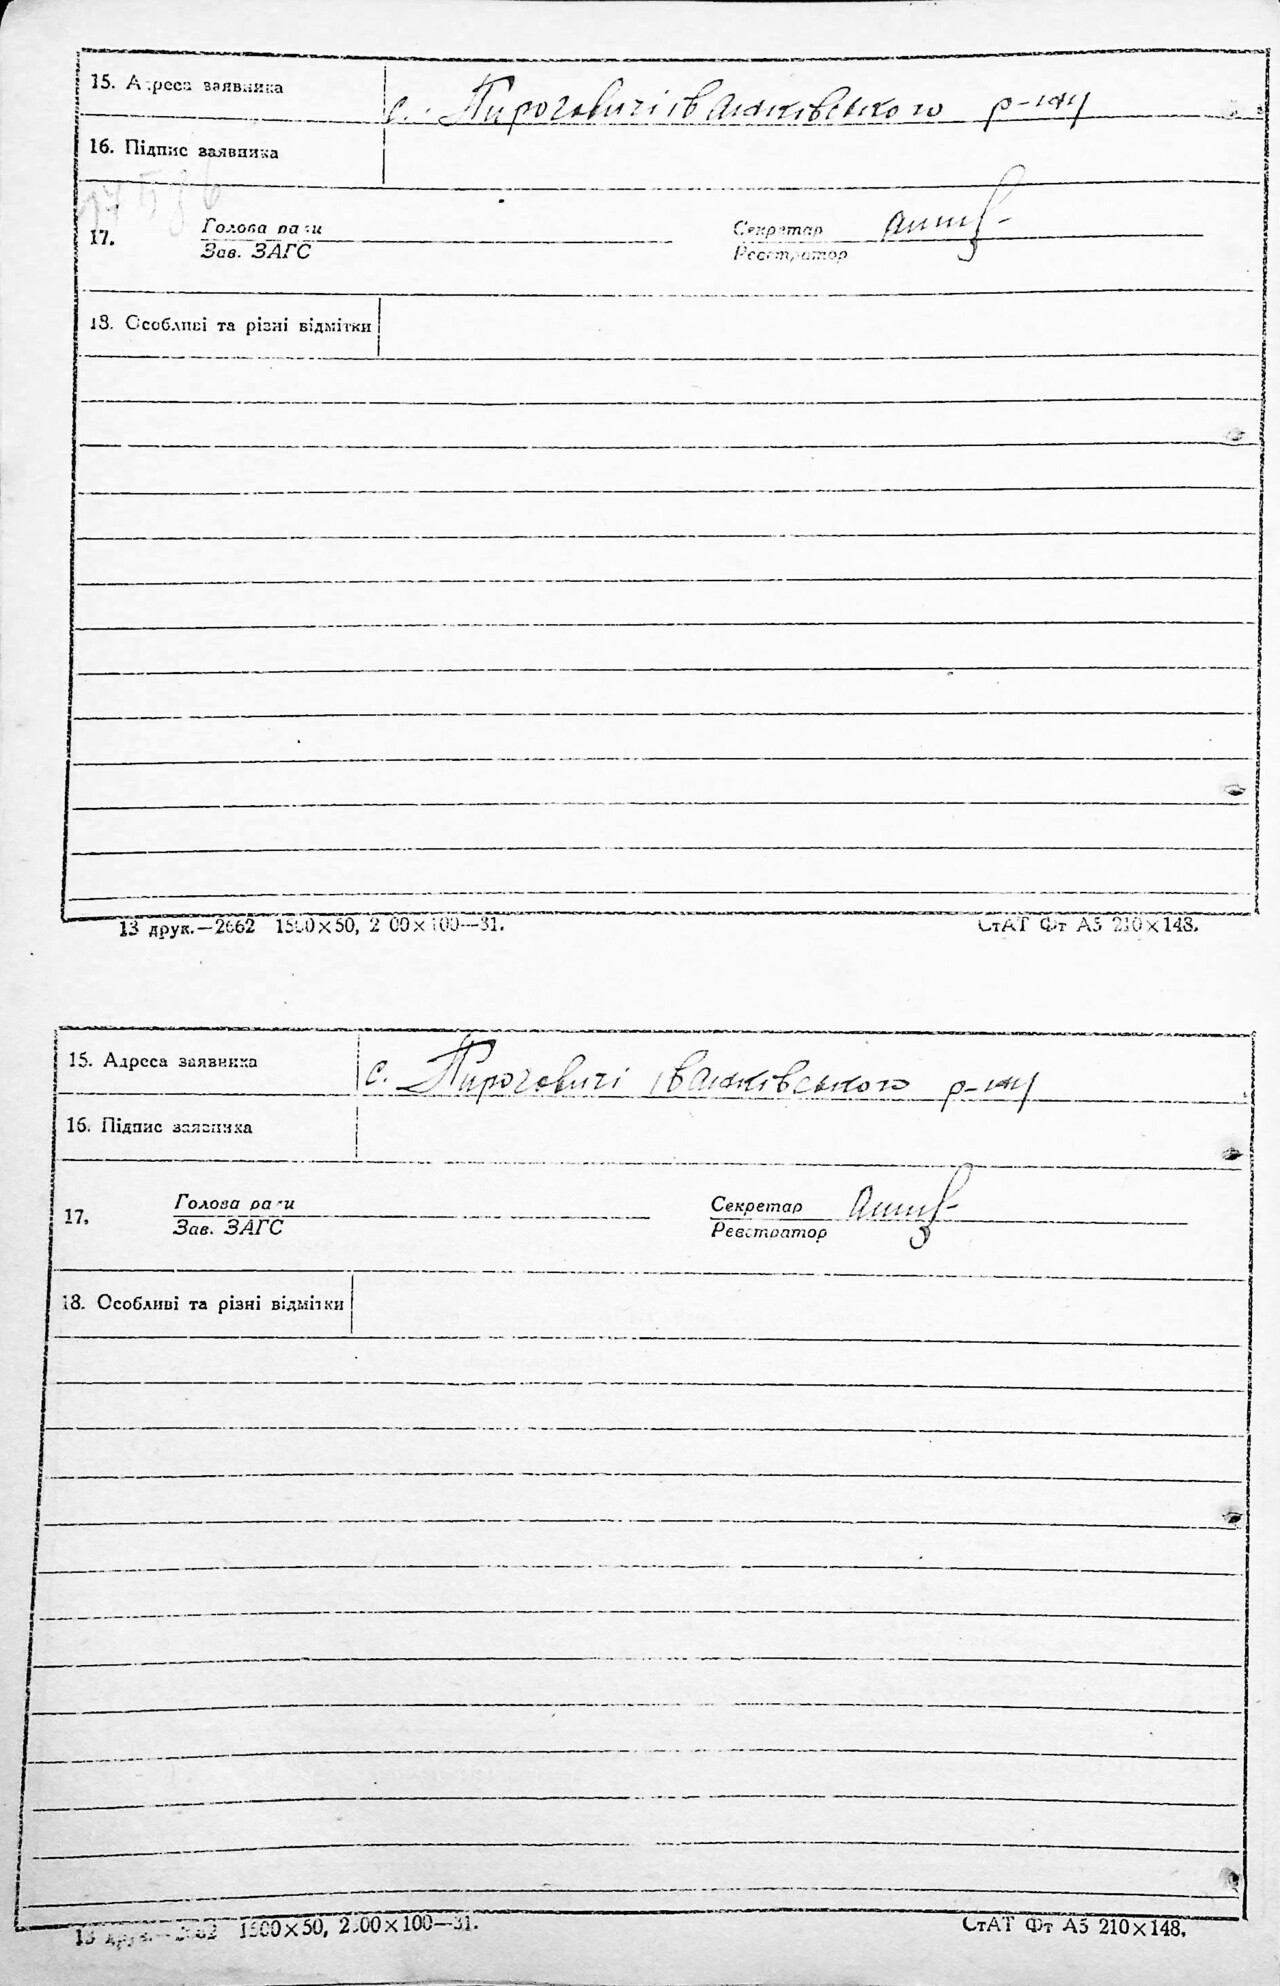 15. Адреса заявника с. Пироговичі Іванківського р-ну
16. Підпис заявника
17. Голова ради Секретар
Зав. ЗАГС Реєстратор
18. Особливі та різні відмітки
13 друк.—2662 1500×50, 2 00×100—31. СтАТ Фт А5 210×148.
15. Адреса заявника с. Пироговичі Іванківського р-ну
16. Підпис заявника
17. Голова ради Секретар
Зав. ЗАГС Реєстратор
18. Особливі та різні відмітки
13 друк.—2662 1500×50, 2.00×100—31. СтАТ Фт А5 210×148.